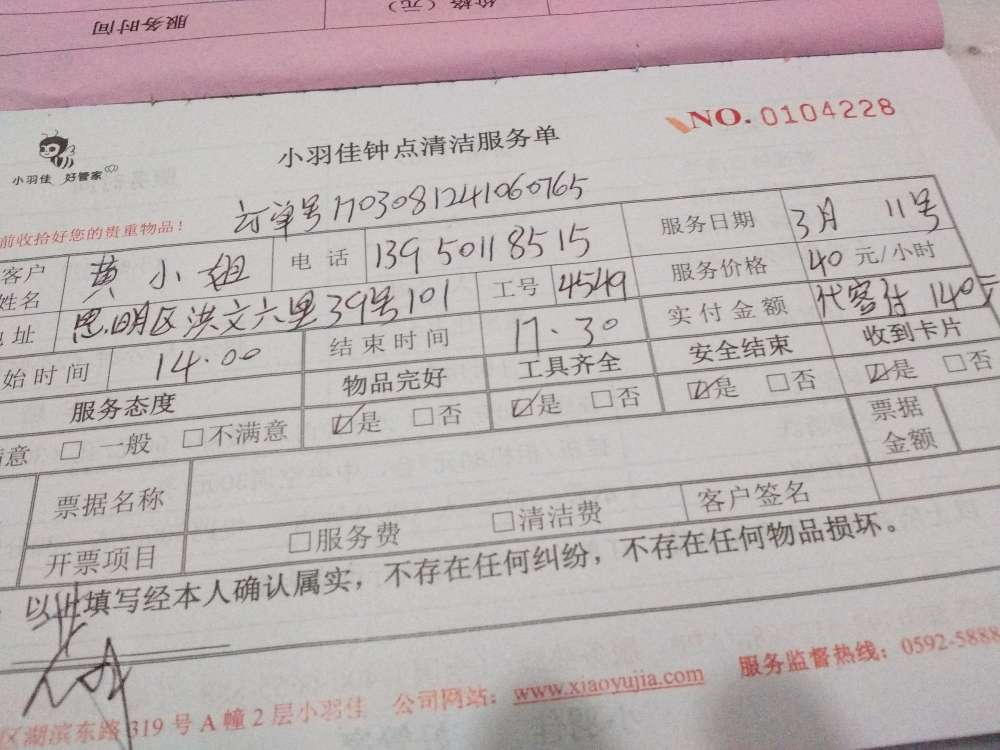 服务时间
价格（元）
小羽佳 好管家
小羽佳钟点清洁服务单
NO. 0104228
前收拾好您的贵重物品！
订单号 1703081241060765
客户姓名 黄小姐 电话 13950118515 服务日期 3月 11号
地址 思明区洪文六里39号101 工号 4549 服务价格 40 元/小时
始时间 14.00 结束时间 17.30 实付金额 代客付 140元
服务态度 物品完好 工具齐全 安全结束 收到卡片
满意 □ 一般 □不满意 ☑是 □否 ☑是 □否 ☑是 □否 ☑是 □否
票据名称 票据金额
开票项目 □服务费 □清洁费 客户签名
以上填写经本人确认属实，不存在任何纠纷，不存在任何物品损坏。
区湖滨东路319号A幢2层小羽佳 公司网站：www.xiaoyujia.com 服务监督热线：0592-5888